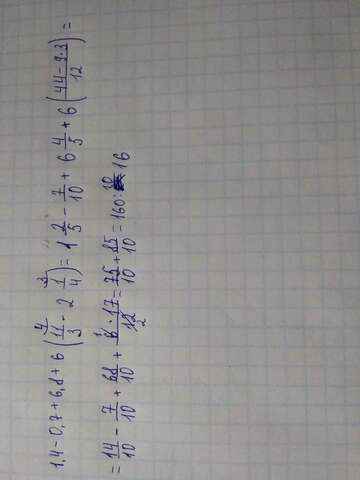 1,4 - 0,7 + 6,8 + 6 (11/3 - 2 1/4) = 1 2/5 - 7/10 + 6 4/5 + 6 ((44 - 9·3)/12) =
= 14/10 - 7/10 + 68/10 + (6·17)/12 = 75/10 + 85/10 = 160 : 10 16